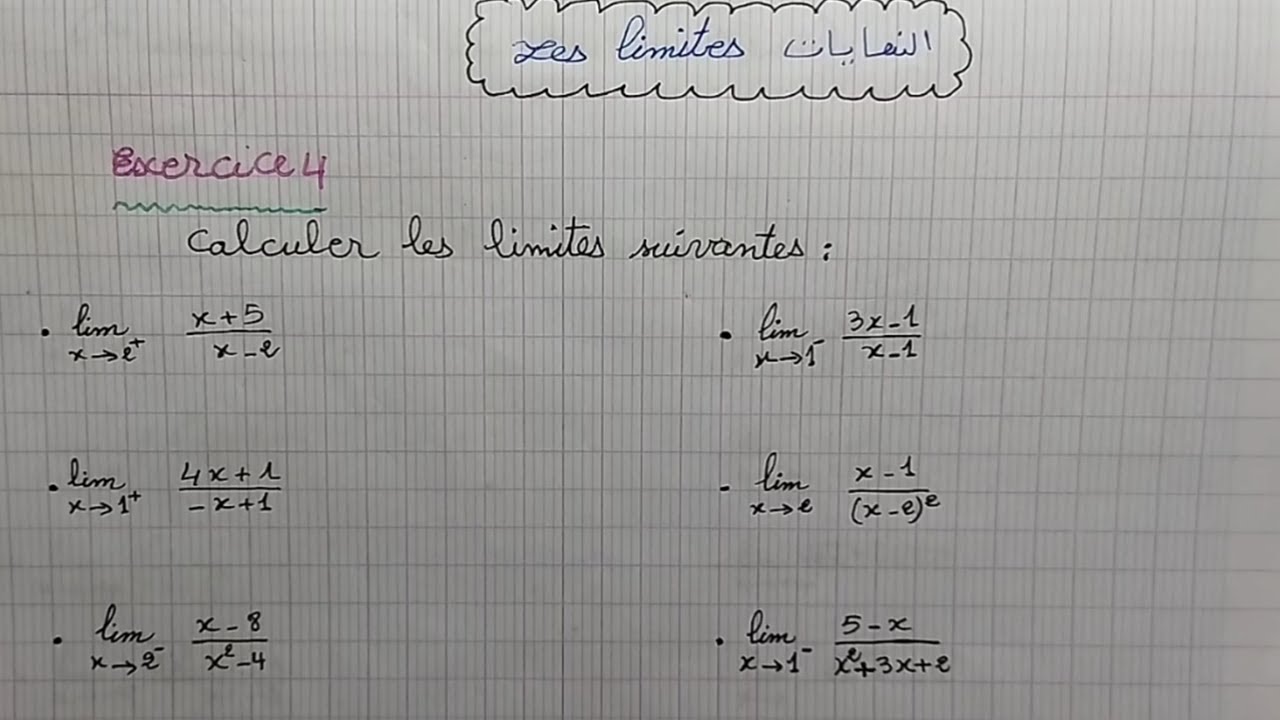 Les limites النهايات
Exercice 4
Calculer les limites suivantes :
• lim x→2⁺ (x+5)/(x-2)
• lim x→1⁻ (3x-1)/(x-1)
• lim x→1⁺ (4x+1)/(-x+1)
- lim x→2 (x-1)/(x-2)²
• lim x→2⁻ (x-8)/(x²-4)
• lim x→1⁻ (5-x)/(x²+3x+2)